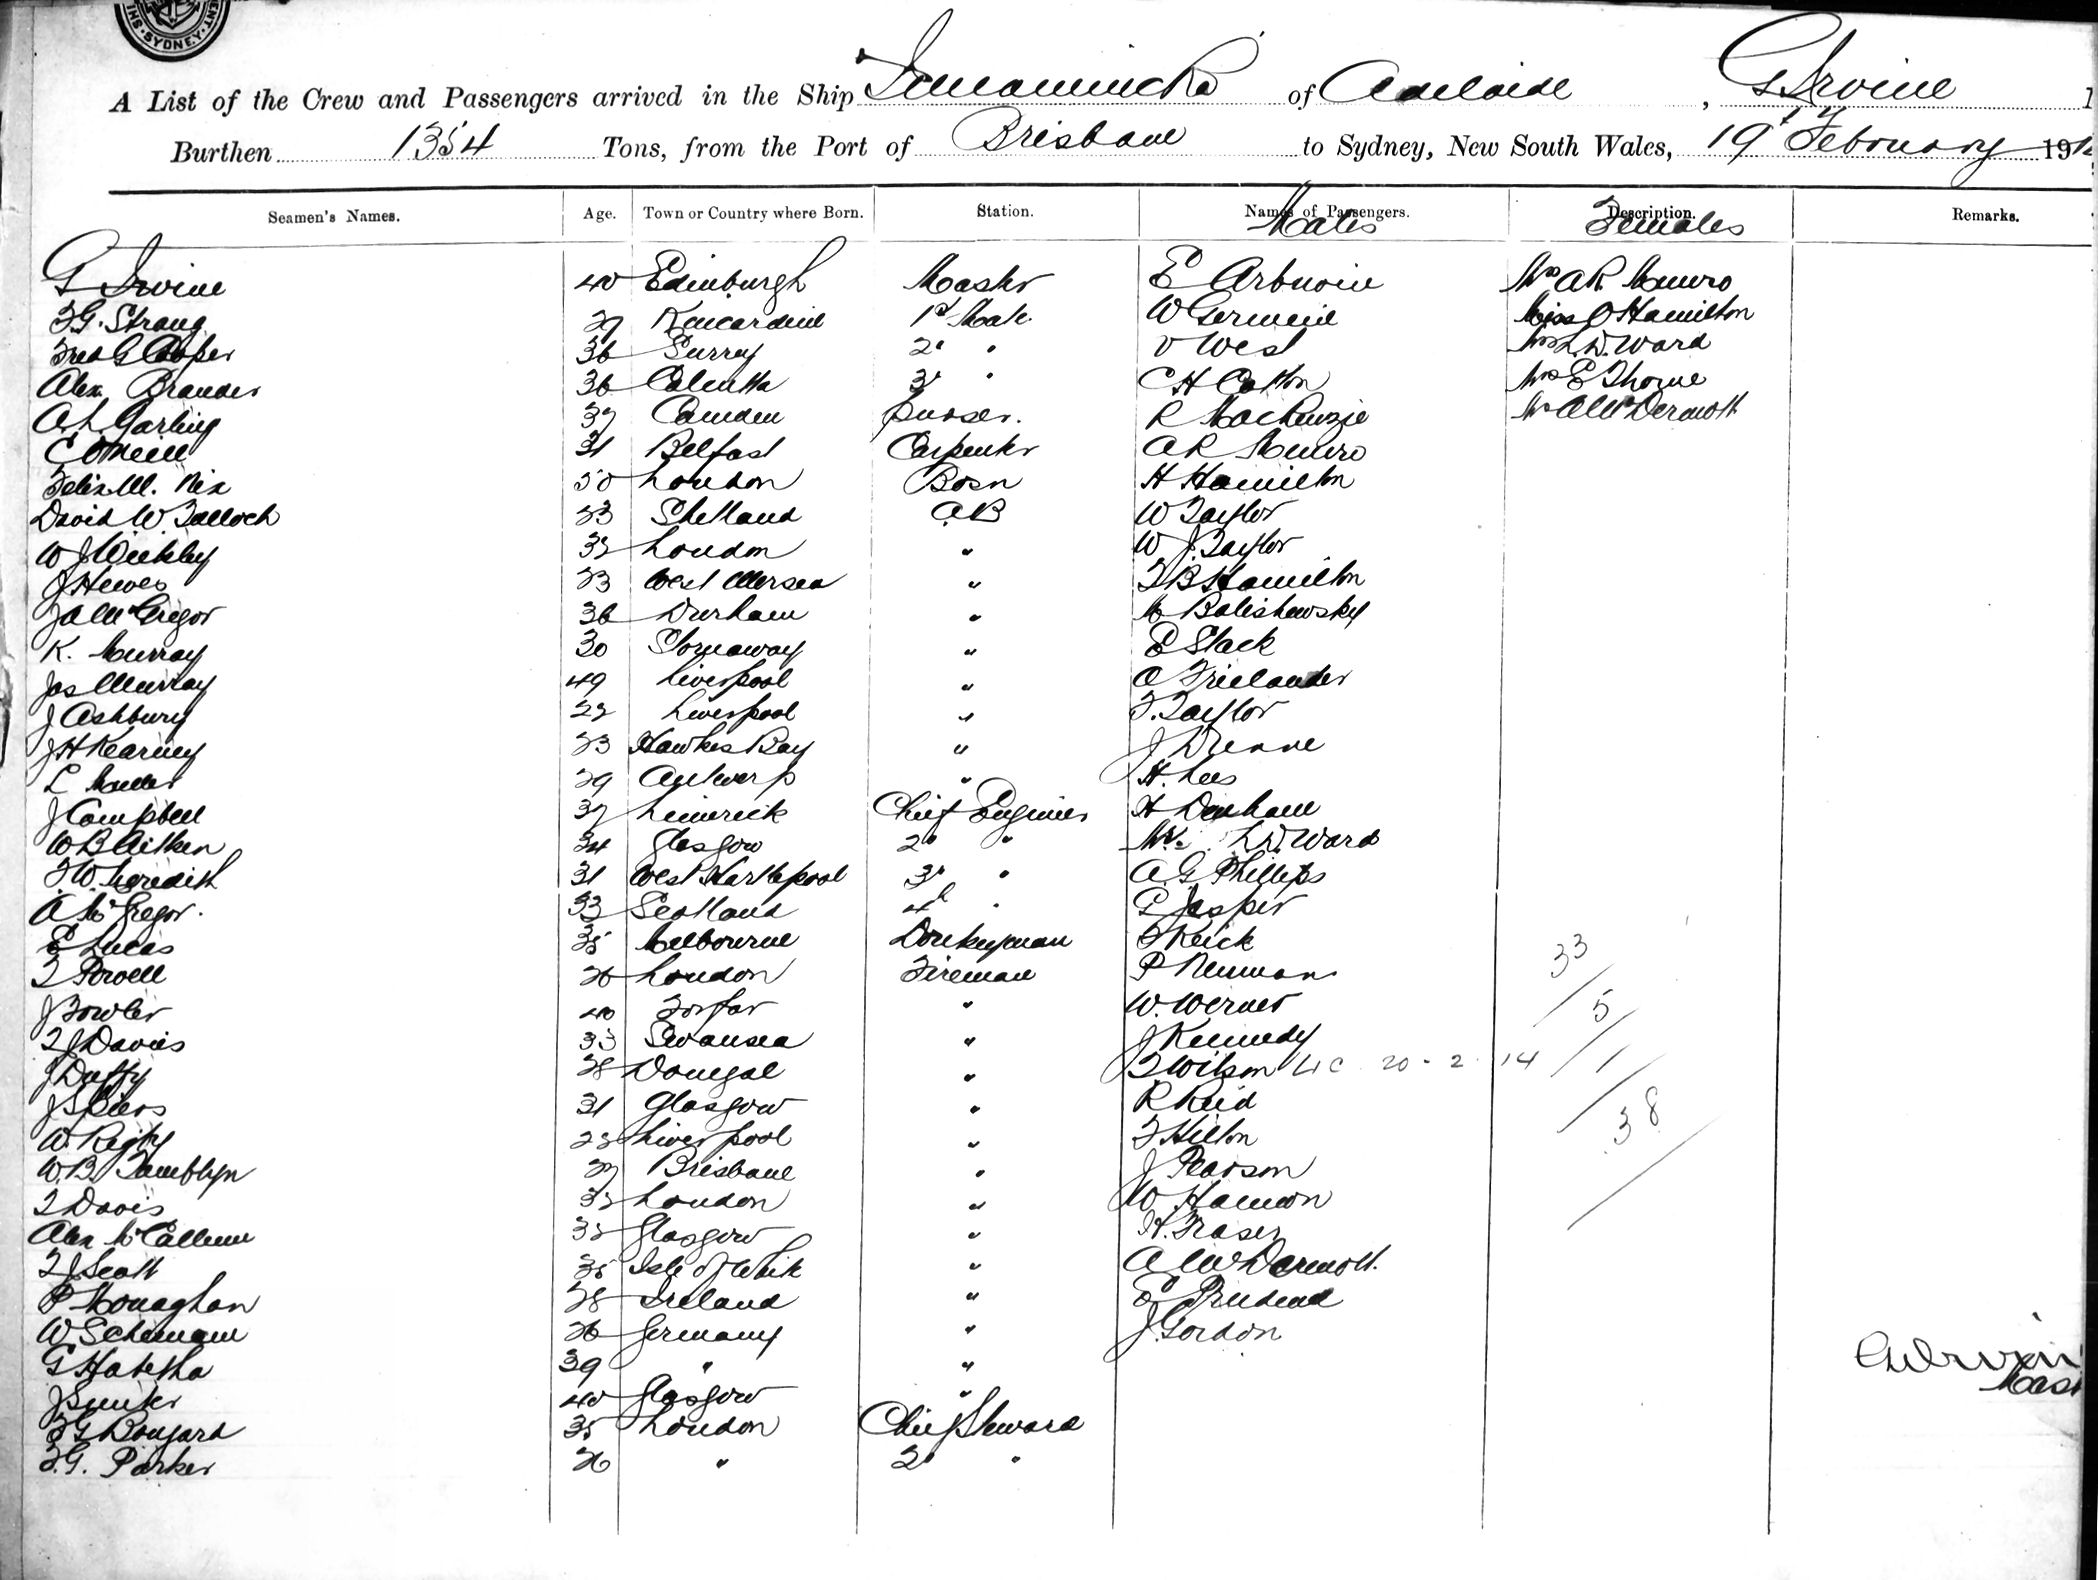 SYDNEY
A List of the Crew and Passengers arrived in the Ship Innamincka of Adelaide, G Irvine
Burthen 1354 Tons, from the Port of Brisbane to Sydney, New South Wales, 19th February 191
Seamen's Names. Age. Town or Country where Born. Station. Names of Passengers. Description. Remarks.
Males Females
G Irvine 40 Edinburgh Master E Arbuoin Mrs AR Munro
F.G. Strang 29 Kincardine 1st Mate W Germein Miss O Hamilton
Fred G Cooper 36 Surrey 2d " V West Mrs L.D. Ward
Alex Brander 36 Calcutta 3d " C H Catton Mrs E Thorne
A.L. Garling 37 Camden Purser. R MacKenzie Mrs A McDermott
E O'Neill 31 Belfast Carpenter A R Munro
Felix M. Nix 50 London Bosn H Hamilton
David W. Tulloch 23 Shetland AB W Taylor
W J Wickley 32 London " W J. Taylor
J Hewes 23 West Mersea " T B Hamilton
F A McGregor 36 Durham " M Balishewsky
K. Murray 30 Stornaway " E Slack
Jas Murray 49 Liverpool " O Frielander
J Ashbury 22 Liverpool " F. Taylor
J H Kearney 23 Hawkes Bay " J Dunne
L Muller 29 Antwerp " H. Lees
J Campbell 37 Limerick Chief Engineer H Denham
W B Aitken 34 Glasgow 2d " Mr. L D. Ward
F W. Meredith 31 West Hartlepool 3d " A. G Phillips
A. McGregor. 33 Scotland 4th " G Jasper
E Lucas 35 Melbourne Donkeyman F Keick
T Powell 26 London Fireman P Neuman
J Fowler 40 Forfar " W. Werner
T J Davies 33 Swansea " J Kennedy
J Duffy 28 Donegal " T Wilson 20 - 2 14
J Spiers 31 Glasgow " R Reid
W. Rigby 23 Liverpool " F Hilton
W. B. Tamblyn 27 Brisbane " J Pearson
T Davis 32 London " W Hannon
Alex McCallum 32 Glasgow " H. Fraser
T J Scott 35 Isle of Whik " A McDermott.
P Monaghan 28 Ireland " E Prudend
W Schumann 26 Germany " J. Gordon
G Habetha 39 " "
J Sunter 40 Glasgow "
F G Bongard 35 London Chief Steward
F. G. Parker 26 " 2d "
33
5
1
38
G Irvine
Mast